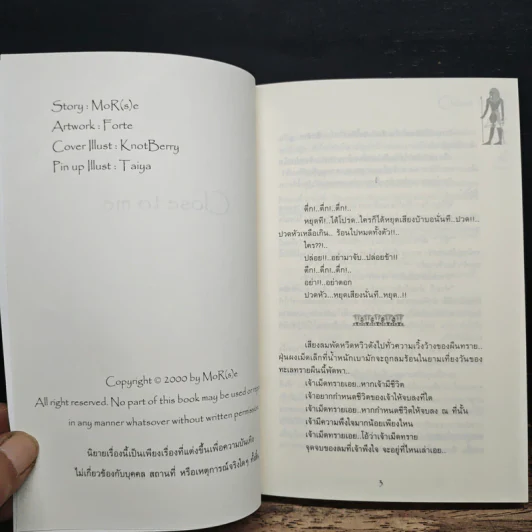 Story : MoR(s)e
Artwork : Forte
Cover Illust : KnotBerry
Pin up Illust : Taiya
Close to me
Copyright © 2000 by MoR(s)e
All right reserved. No part of this book may be used or
in any manner whatsover without written permission
นิยายเรื่องนี้เป็นเพียงเรื่องที่แต่งขึ้นเพื่อความบันเทิง
ไม่เกี่ยวข้องกับบุคคล สถานที่ หรือเหตุการณ์จริงใดๆ ทั้งสิ้น
ตึก!..ตึก!..ตึก!..
หยุดที!..ได้โปรด..ใครก็ได้หยุดเสียงบ้าบอนั่นที..ปวด!!..
ปวดหัวเหลือเกิน.. ร้อนไปหมดทั้งตัว!!..
ใคร??!..
ปล่อย!!..อย่ามาจับ..ปล่อยข้า!!
ตึก!..ตึก!..ตึก!..
อย่า!!..อย่าตอก
ปวดหัว...หยุดเสียงนั่นที..หยุด..!!
เสียงลมพัดหวีดหวิวดังไปทั่วความเวิ้งว้างของผืนทราย..
ฝุ่นผงเม็ดเล็กที่น้ำหนักเบามักจะถูกลมร้อนในยามเที่ยงวันของ
ทะเลทรายผืนนี้พัดพา..
เจ้าเม็ดทรายเอย..หากเจ้ามีชีวิต
เจ้าอยากกำหนดชีวิตของเจ้าให้จบลงที่ใด
เจ้าเม็ดทรายเอย..หากกำหนดชีวิตให้จบลง ณ ที่นั้น
เจ้ามีความพึงใจมากน้อยเพียงไหน
เจ้าเม็ดทรายเอย..โอ้ว่าเจ้าเม็ดทราย
จุดจบของลมที่เจ้าพึงใจ จะอยู่ที่ไหนเล่าเอย..
5